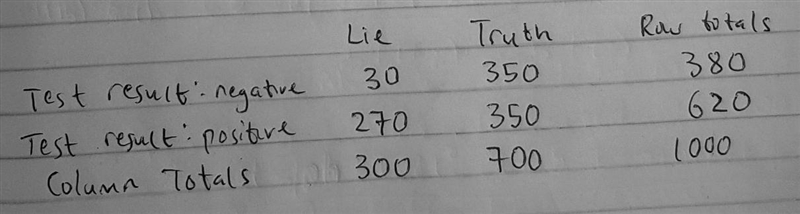 Lie Truth Row totals
Test result: negative 30 350 380
Test result: positive 270 350 620
Column Totals 300 700 1000